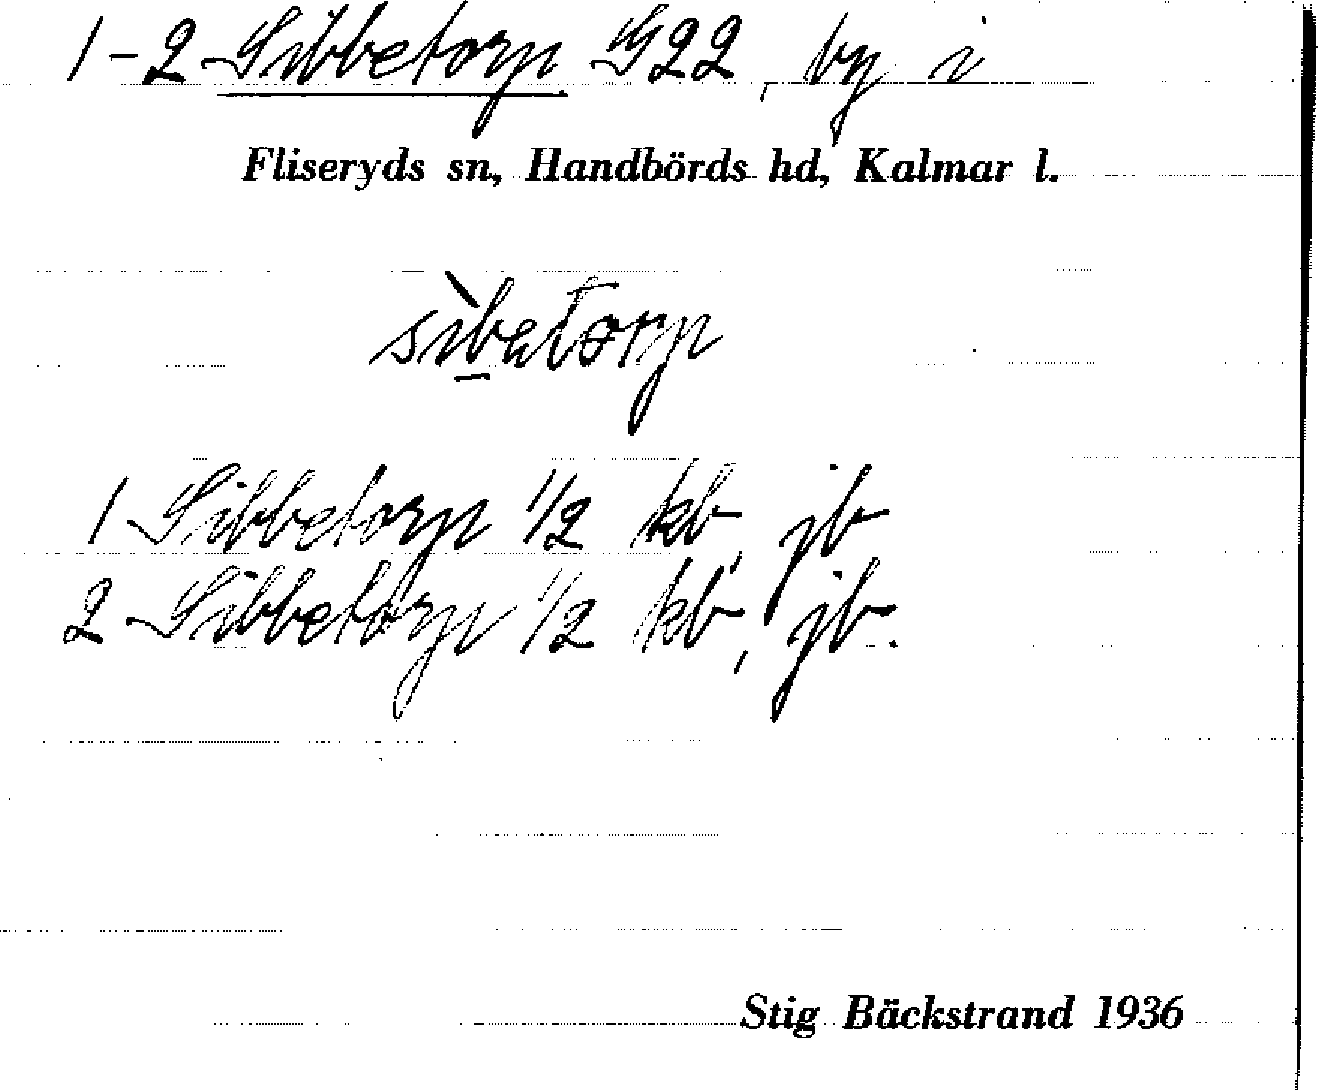 1-2 Sibbetorp G22, by i
Fliseryds sn, Handbörds hd, Kalmar l.
sìbetorp
1 Sibbetorp 1/2 kb, jb
2 Sibbetorp 1/2 kb, jb.
Stig Bäckstrand 1936